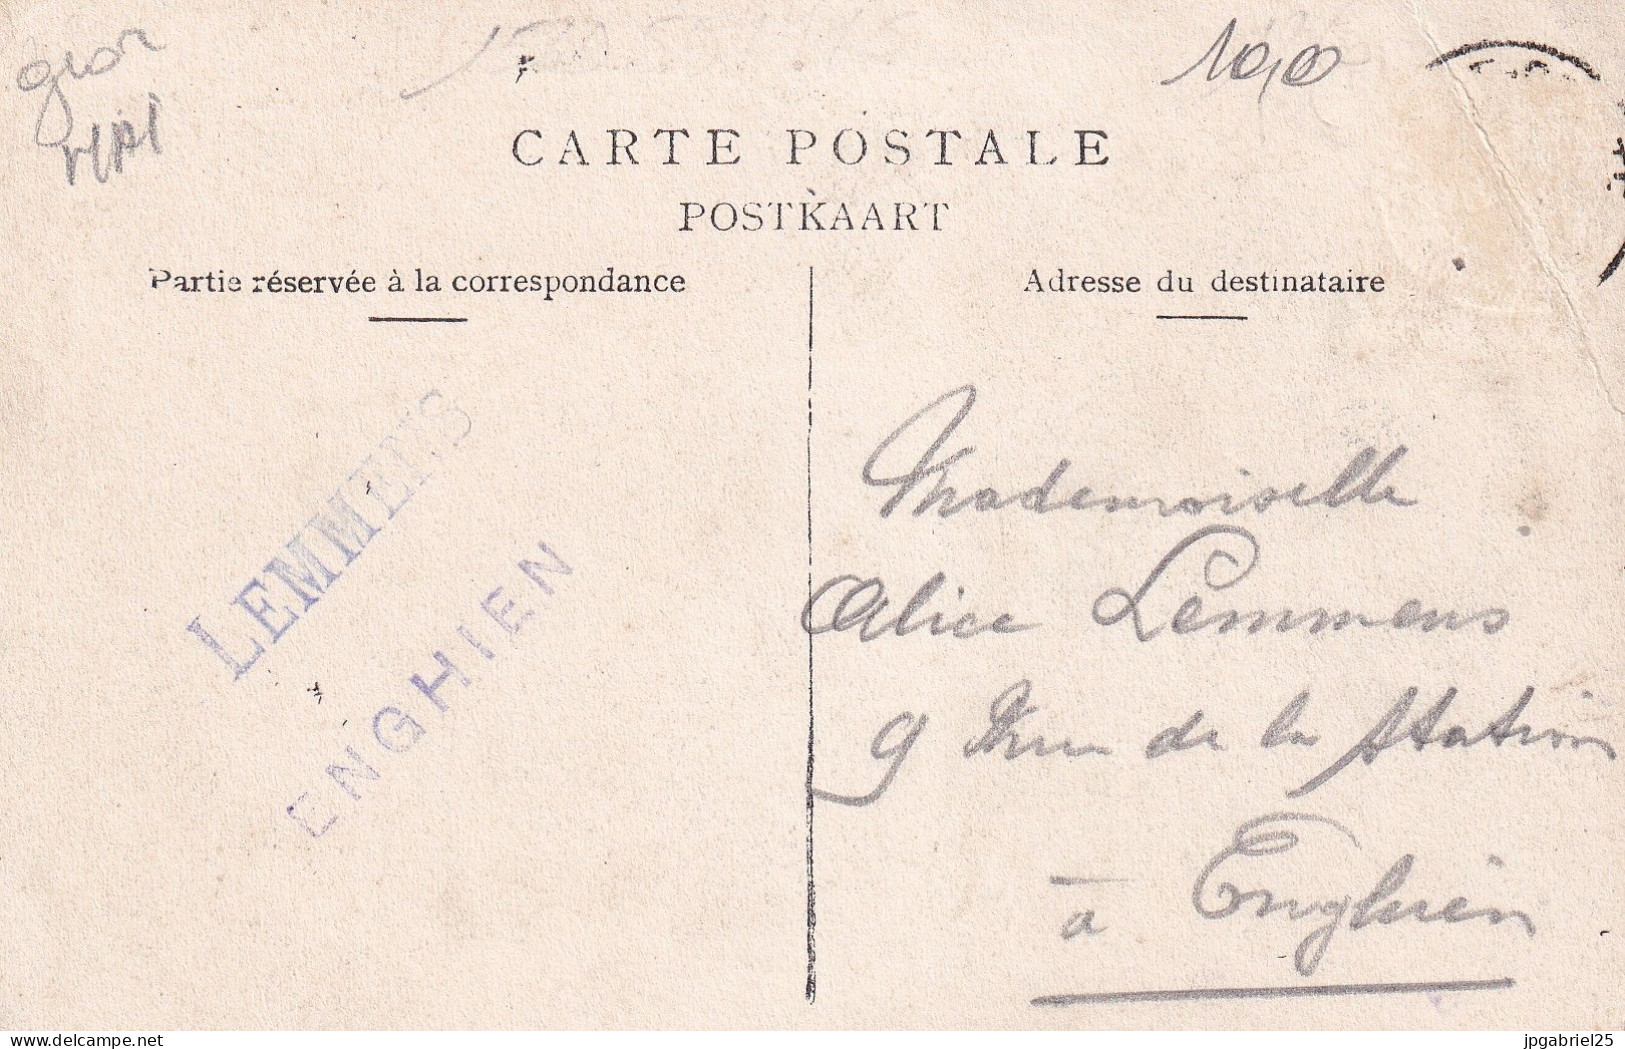 10,0
CARTE POSTALE
POSTKAART
Partie réservée à la correspondance
Adresse du destinataire
LEMMENS
ENGHIEN
Mademoiselle
Alice Lemmens
9 Rue de la Station
à Enghien
delcampe.net
jpgabriel25